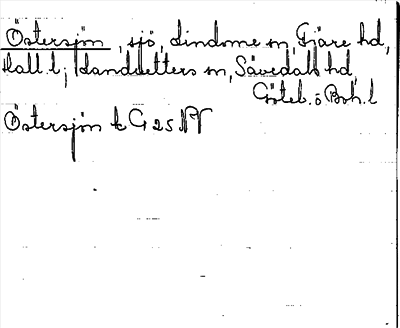 Östersjön, sjö, Lindome sn, Fjäre hd,
Hall. l; Landvetters sn, Sävedals hd,
Göteb. o Boh. l
Östersjön tc G 25 NV